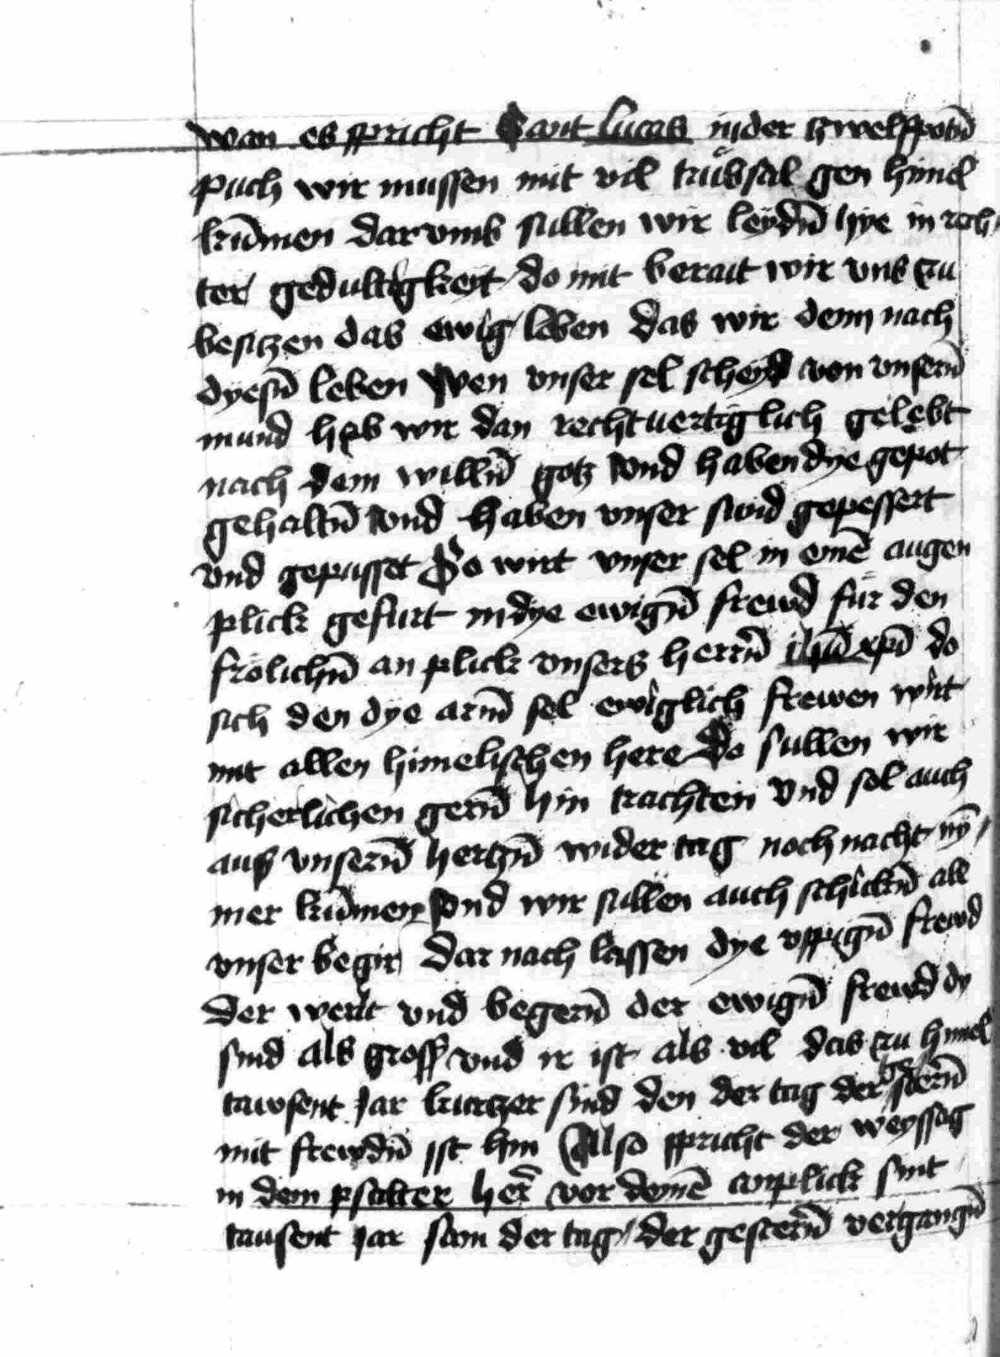 wan es spricht Sant lucas inder zwelfpotn̄
puch wir mussen mit vil trübsal gen himel
kūmen dar vmb sullen wir leydn̄ hye in rech
ter gedultigkeit do mit berait wir vns zu
besitzen das ewig leben das wir denn nach
dyesn̄ leben Wen vnser sel scheyd von vnserm̄
mund hab wir dan rechtuertiglich gelebt
nach dem willn̄ gotz vnd haben dye gepot
gehaltn̄ vnd haben vnser sund gepessert
vnd gepusset So wirt vnser sel in einē augen
plick gefurt in dye ewign̄ frewd für den
frölichn̄ an plick vnsers herrn̄ ihū xp̄i do
sich den dye arm̄ sel ewiglich frewen wirt
mit allen himelischen here Do sullen wir
sicherlichen gern̄ hin trachten vnd sol auch
aus vnserm̄ hertzn̄ wider tag noch nacht nȳ
mer kūmen vnd wir sullen auch schickn̄ all
vnser begir dar nach lassen dye vppign̄ frewd
der werlt vnd begern̄ der ewign̄ frewd dy
sind als gross vnd ir ist als vil das zu himel
tawsent Jar kurtzer sind den der tag der gestern̄
mit frewdn̄ ist hin Also spricht der weyssag
in dem psalter her̄ vor deinē anplick sint
tausent jar sam der tag der gestern̄ vergangn̄